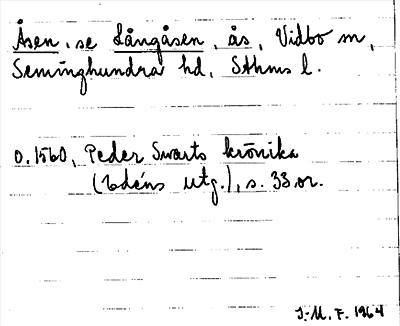 Åsen, se Långåsen, ås, Vidbo sn,
Seminghundra hd, Sthms l.
o. 1560, Peder Swarts krönika
(Edéns utg.), s. 33 or.
J.-M. F. 1964